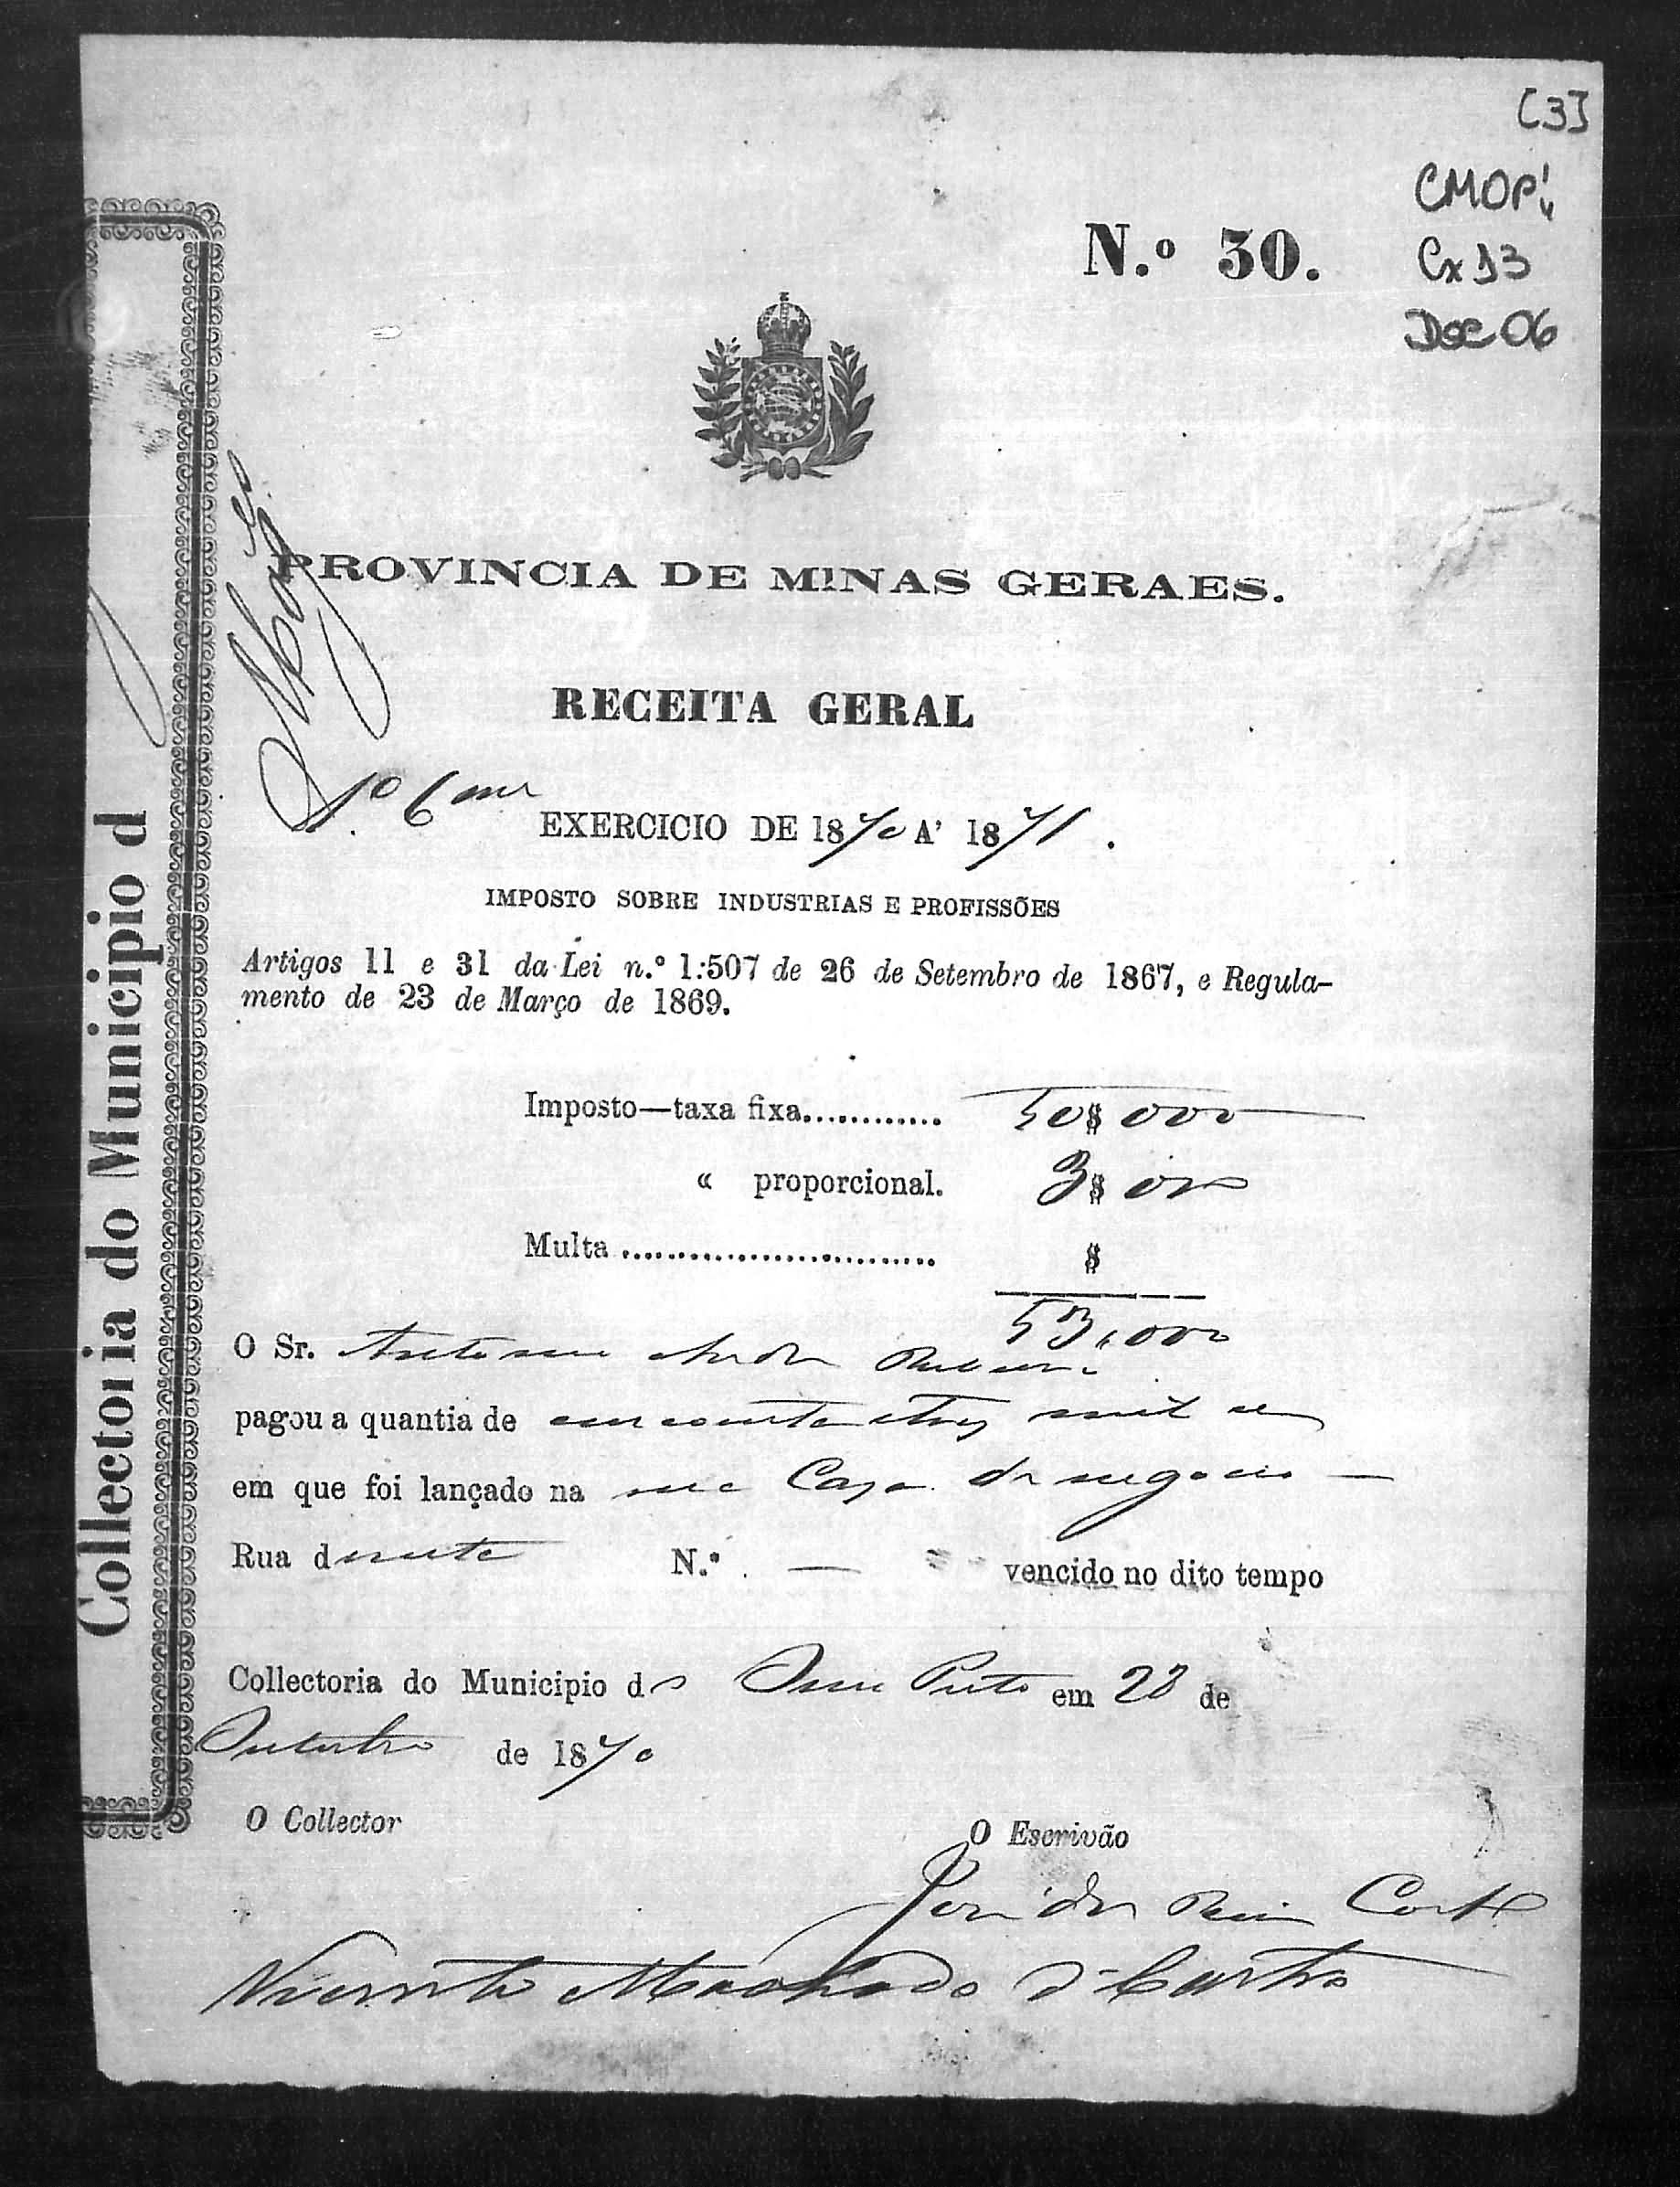 [3]
CMOP
Cx 13
Doc 06
N.º 30.
PROVINCIA DE MINAS GERAES.
RECEITA GERAL
1º
EXERCICIO DE 1870 A' 1871.
IMPOSTO SOBRE INDUSTRIAS E PROFISSÕES
Artigos 11 e 31 da Lei n.º 1:507 de 26 de Setembro de 1867, e Regula-
mento de 23 de Março de 1869.
Imposto—taxa fixa............ 50$000
« proporcional. 3$000
Multa ............................ $
53,000
O Sr. Antonio
pagou a quantia de cincoenta e tres mil
em que foi lançado na sua Casa de negocio —
Rua d N.º — vencido no dito tempo
Collectoria do Municipio d Ouro Preto em 28 de
Outubro de 1870
O Collector
O Escrivão
Costa
Vicente Machado d Castro
Collectoria do Municipio d